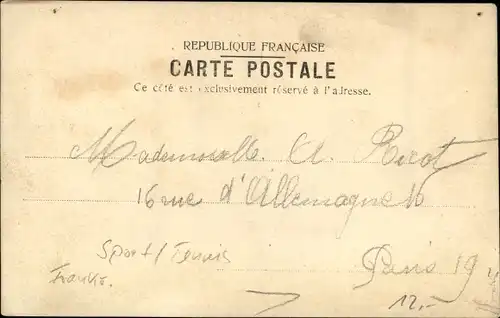 REPUBLIQUE FRANÇAISE
CARTE POSTALE
Ce côté est exclusivement réservé à l'adresse.
Mademoiselle A. Ricot
16 rue d'Allemagne 16
Sport / Tennis
Paris 19
12,-